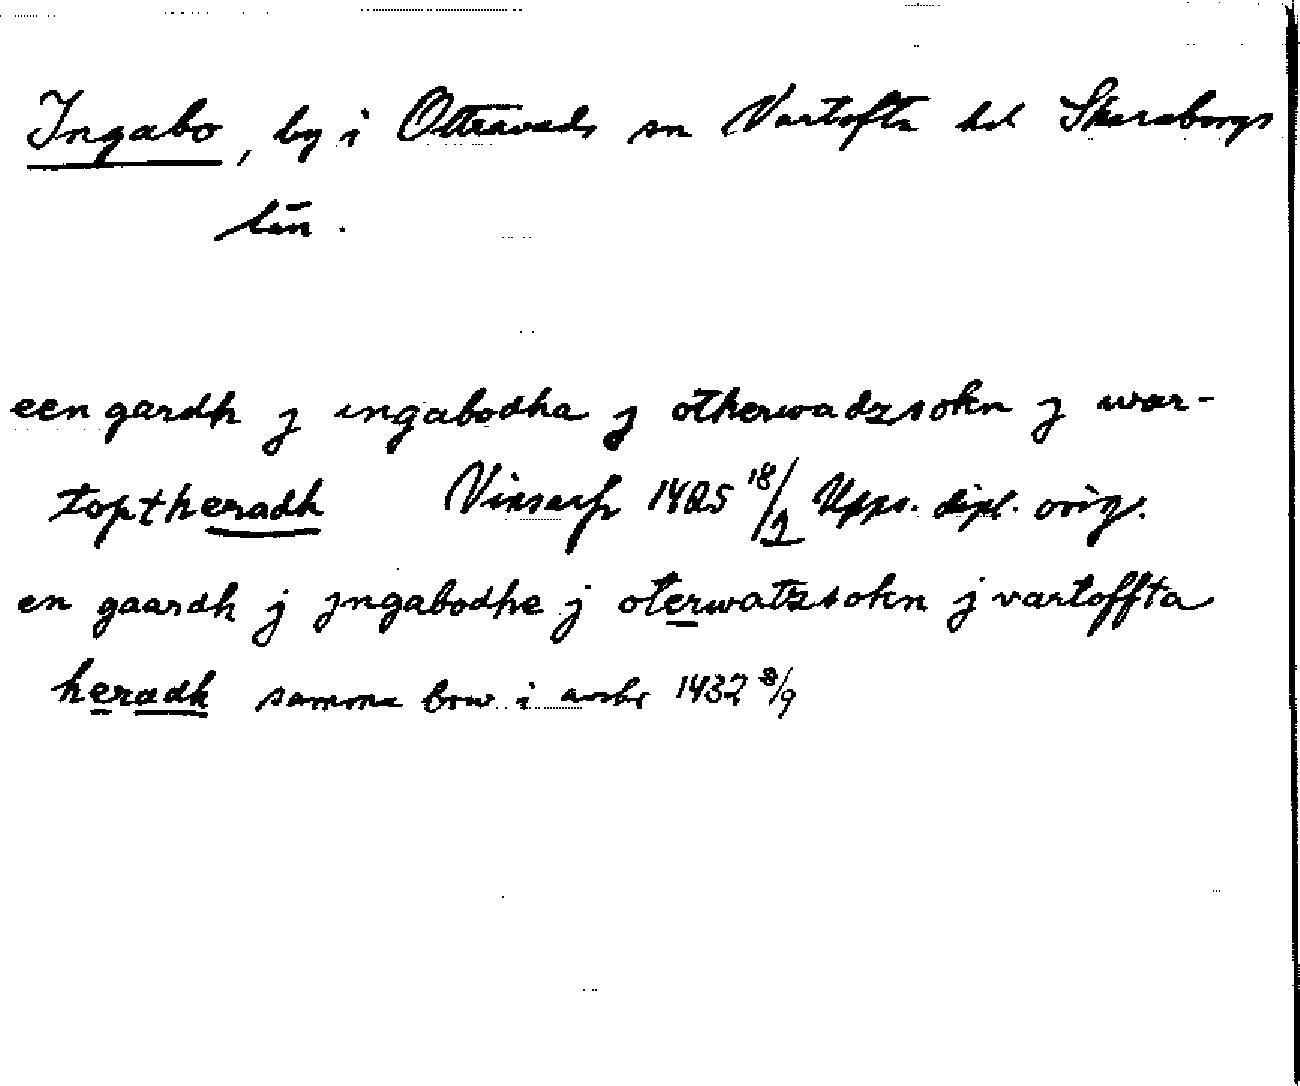 Ingabo, by i Ottravads sn Vartofta hd Skaraborgs
län.
een gardh j ingabodha j otherwadzsokn j war-
toptheradh Vinsarp 1425 18/2 Upps. dipl. orig.
en gaardh j jngabodhe j oterwatzsokn j vartoffta
heradh samma brw i avskr 1432 8/9